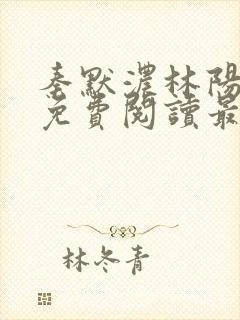 秦默濃林陽
免費閱讀最
林冬青